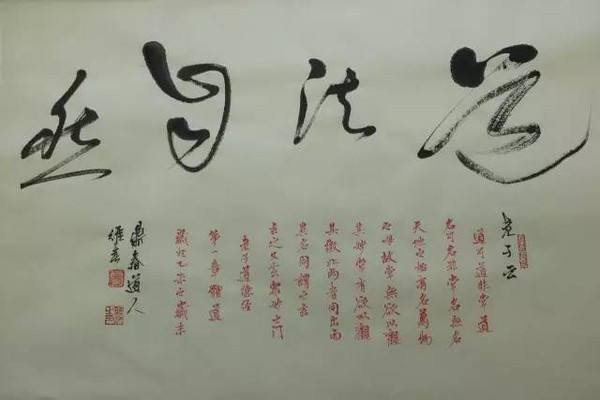 道法自然
老子云
道可道非常道
名可名非常名無名
天地之始有名萬物
之母故常無欲以觀
其妙常有欲以觀
其徼此兩者同出而
異名同謂之玄
玄之又玄眾妙之門
老子道德經
第一章體道
歲次乙未之歲末
道人